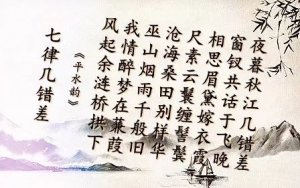 七律几错差
《平水韵》
风起余涟桥拱下
我情醉梦在蒹葭
巫山烟雨千般旧
沧海桑田别样华
尺素云鬟缠髻鬓
相思眉黛嫁衣霞
窗钗共话于飞晚
夜暮秋江几错差